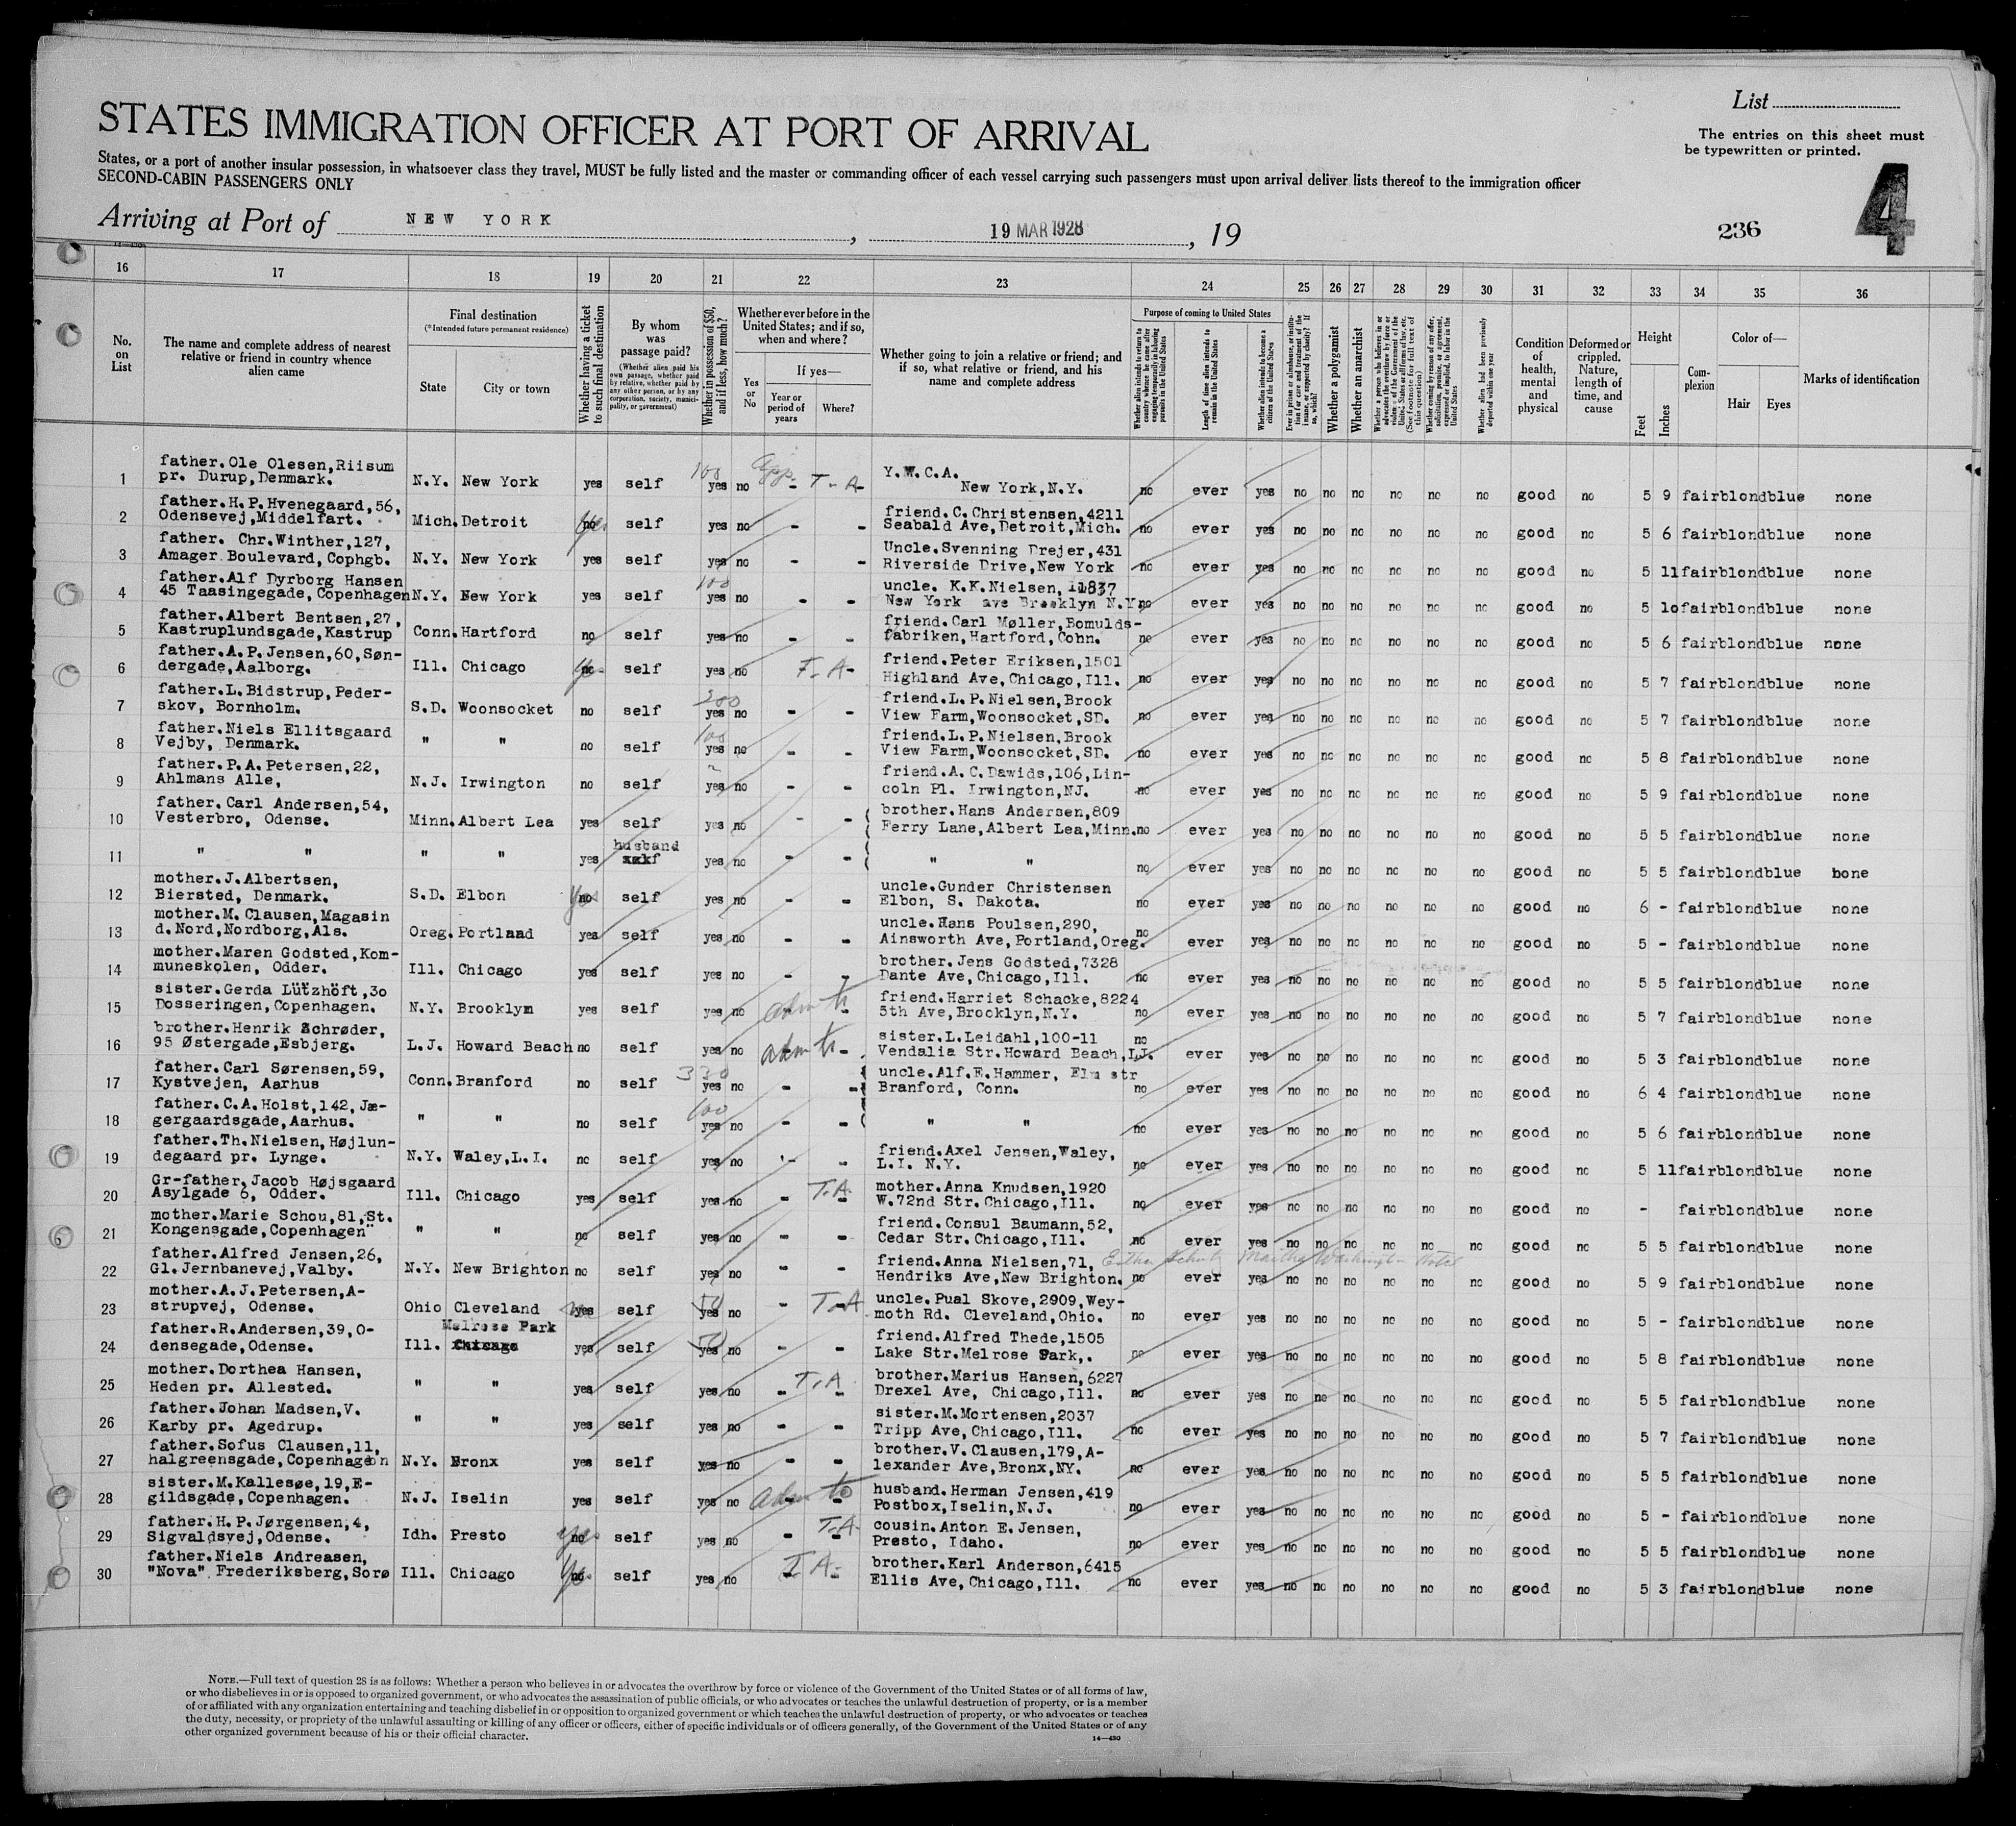 List
STATES IMMIGRATION OFFICER AT PORT OF ARRIVAL
The entries on this sheet must
be typewritten or printed.
States, or a port of another insular possession, in whatsoever class they travel, MUST be fully listed and the master or commanding officer of each vessel carrying such passengers must upon arrival deliver lists thereof to the immigration officer
SECOND-CABIN PASSENGERS ONLY
4
Arriving at Port of NEW YORK , 19 MAR 1928 , 19 236
16 17 18 19 20 21 22 23 24 25 26 27 28 29 30 31 32 33 34 35 36
No. on List
The name and complete address of nearest relative or friend in country whence alien came
Final destination
(*Intended future permanent residence)
State
City or town
Whether having a ticket to such final destination
By whom was passage paid?
(Whether alien paid his own passage, whether paid by relative, whether paid by any other person, or by any corporation, society, municipality, or government)
Whether in possession of $50, and if less, how much?
Whether ever before in the United States; and if so, when and where?
Yes or No
If yes—
Year or period of years
Where?
Whether going to join a relative or friend; and if so, what relative or friend, and his name and complete address
Purpose of coming to United States
Whether alien intends to return to country whence he came after engaging temporarily in laboring pursuits in the United States
Length of time alien intends to remain in the United States
Whether alien intends to become a citizen of the United States
Ever in prison or almshouse, or institution for care and treatment of the insane, or supported by charity? If so, which?
Whether a polygamist
Whether an anarchist
Whether a person who believes in or advocates the overthrow by force or violence of the Government of the United States or all forms of law, etc. (See footnote for full text of this question)
Whether coming by reason of any offer, solicitation, promise, or agreement, expressed or implied, to labor in the United States
Whether alien had been previously deported within one year
Condition of health, mental and physical
Deformed or crippled. Nature, length of time, and cause
Height
Feet
Inches
Complexion
Color of—
Hair
Eyes
Marks of identification
1 father.Ole Olesen,Riisum pr. Durup,Denmark. N.Y. New York yes self 100 yes no - T-A- Y.M.C.A. New York,N.Y. no ever yes no no no no no no good no 5 9 fair blond blue none
2 father.H.P.Hvenegaard,56, Odensevej,Middelfart. Mich. Detroit no yes self yes no - - friend.C.Christensen,4211 Seabald Ave,Detroit,Mich. no ever yes no no no no no no good no 5 6 fair blond blue none
3 father. Chr.Winther,127, Amager Boulevard, Cophgb. N.Y. New York yes self yes no - - Uncle.Svenning Drejer,431 Riverside Drive,New York no ever yes no no no no no no good no 5 11 fair blond blue none
4 father.Alf Dyrborg Hansen 45 Taasingegade,Copenhagen N.Y. New York yes self 100 yes no - - uncle. K.K.Nielsen, 1837 New York ave Brooklyn N.Y. no ever yes no no no no no no good no 5 1o fair blond blue none
5 father.Albert Bentsen,27, Kastruplundsgade,Kastrup Conn. Hartford no self yes no - - friend.Carl Møller,Bomulds- fabriken,Hartford,Conn. no ever yes no no no no no no good no 5 6 fair blond blue none
6 father.A.P.Jensen,60,Søn- dergade,Aalborg. Ill. Chicago no yes self yes no T-A- friend.Peter Eriksen,1501 Highland Ave,Chicago,Ill. no ever yes no no no no no no good no 5 7 fair blond blue none
7 father.L.Bidstrup,Peder- skov, Bornholm. S.D. Woonsocket no self 300 yes no - - friend.L.P.Nielsen,Brook View Farm,Woonsocket,SD. no ever yes no no no no no no good no 5 7 fair blond blue none
8 father.Niels Ellitsgaard Vejby, Denmark. " " no self 100 yes no - - friend.L.P.Nielsen,Brook View Farm,Woonsocket,SD. no ever yes no no no no no no good no 5 8 fair blond blue none
9 father.P.A.Petersen,22, Ahlmans Alle, N.J. Irwington no self yes no - - friend.A.C.Dawids,106,Lin- coln Pl. Irwington,NJ. no ever yes no no no no no no good no 5 9 fair blond blue none
10 father.Carl Andersen,54, Vesterbro, Odense. Minn. Albert Lea yes self yes no - - brother.Hans Andersen,809 Ferry Lane,Albert Lea,Minn. no ever yes no no no no no no good no 5 5 fair blond blue none
11 " " " " yes husband yes no - - " " no ever yes no no no no no no good no 5 5 fair blond blue bone
12 mother.J.Albertsen, Biersted, Denmark. S.D. Elbon no yes self yes no - - uncle.Gunder Christensen Elbon, S. Dakota. no ever yes no no no no no no good no 6 - fair blond blue none
13 mother.M. Clausen,Magasin d.Nord,Nordborg,Als. Oreg. Portland yes self yes no - - uncle.Hans Poulsen,290, Ainsworth Ave,Portland,Oreg. no ever yes no no no no no no good no 5 - fair blond blue none
14 mother.Maren Godsted,Kom- muneskolen, Odder. Ill. Chicago yes self yes no - - brother.Jens Godsted,7328 Dante Ave,Chicago,Ill. no ever yes no no no no no no good no 5 5 fair blond blue none
15 sister.Gerda Lützhöft,3o Dosseringen,Copenhagen. N.Y. Brooklyn yes self yes no - friend.Harriet Schacke,8224 5th Ave,Brooklyn,N.Y. no ever yes no no no no no no good no 5 7 fair blond blue none
16 brother.Henrik Schrøder, 95 Østergade,Esbjerg. L.J. Howard Beach no self yes no - sister.L.Leidahl,100-11 Vendalia Str.Howard Beach,LJ. no ever yes no no no no no no good no 5 3 fair blond blue none
17 father.Carl Sørensen,59, Kystvejen, Aarhus Conn. Branford no self 330 yes no - - uncle.Alf.E.Hammer, Elm str Branford, Conn. no ever yes no no no no no no good no 6 4 fair blond blue none
18 father.C.A.Holst,142,Jæ- gergaardsgade,Aarhus. " " no self 100 yes no - - " " no ever yes no no no no no no good no 5 6 fair blond blue none
19 father.Th.Nielsen,Højlun- degaard pr. Lynge. N.Y. Waley,L.I. no self yes no - - friend.Axel Jensen,Waley, L.I. N.Y. no ever yes no no no no no no good no 5 11 fair blond blue none
20 Gr-father.Jacob Højsgaard Asylgade 6, Odder. Ill. Chicago yes self yes no - T.A. mother.Anna Knudsen,1920 W.72nd Str.Chicago,Ill. no ever yes no no no no no no good no - fair blond blue none
21 mother.Marie Schou,81,St. Kongensgade,Copenhagen " " no self yes no - - friend.Consul Baumann,52, Cedar Str.Chicago,Ill. no ever yes no no no no no no good no 5 5 fair blond blue none
22 father.Alfred Jensen,26, Gl.Jernbanevej,Valby. N.Y. New Brighton no self yes no - - friend.Anna Nielsen,71, Hendriks Ave,New Brighton. Martha Washington Hotel no ever yes no no no no no no good no 5 9 fair blond blue none
23 mother.A.J.Petersen,A- strupvej, Odense. Ohio Cleveland yes self 50 yes no - T.A. uncle.Pual Skove,2909,Wey- moth Rd. Cleveland,Ohio. no ever yes no no no no no no good no 5 - fair blond blue none
24 father.R.Andersen,39,O- densegade,Odense. Ill. Melrose Park Chicago yes self 50 yes no - - friend.Alfred Thede,1505 Lake Str.Melrose Park,. no ever yes no no no no no no good no 5 8 fair blond blue none
25 mother.Dorthea Hansen, Heden pr. Allested. " " yes self yes no - T.A. brother.Marius Hansen,6227 Drexel Ave, Chicago,Ill. no ever yes no no no no no no good no 5 5 fair blond blue none
26 father.Johan Madsen,V. Karby pr. Agedrup. " " yes self yes no - - sister.M.Mortensen,2037 Tripp Ave,Chicago,Ill. no ever yes no no no no no no good no 5 7 fair blond blue none
27 father.Sofus Clausen,11, halgreensgade,Copenhagen N.Y. Bronx yes self yes no - - brother.V.Clausen,179,A- lexander Ave,Bronx,NY. no ever yes no no no no no no good no 5 5 fair blond blue none
28 sister.M.Kallesøe,19,E- gildsgade,Copenhagen. N.J. Iselin yes self yes no husband.Herman Jensen,419 Postbox,Iselin,N.J. no ever yes no no no no no no good no 5 - fair blond blue none
29 father.H.P.Jørgensen,4, Sigvaldsvej,Odense. Idh. Presto no yes self yes no - T.A. cousin.Anton E.Jensen, Presto, Idaho. no ever yes no no no no no no good no 5 5 fair blond blue none
30 father.Niels Andreasen, "Nova" Frederiksberg,Sorø Ill. Chicago no yes self yes no T.A- brother.Karl Anderson,6415 Ellis Ave,Chicago,Ill. no ever yes no no no no no no good no 5 3 fair blond blue none
NOTE.—Full text of question 28 is as follows: Whether a person who believes in or advocates the overthrow by force or violence of the Government of the United States or of all forms of law,
or who disbelieves in or is opposed to organized government, or who advocates the assassination of public officials, or who advocates or teaches the unlawful destruction of property, or is a member
of or affiliated with any organization entertaining and teaching disbelief in or opposition to organized government or which teaches the unlawful destruction of property, or who advocates or teaches
the duty, necessity, or propriety of the unlawful assaulting or killing of any officer or officers, either of specific individuals or of officers generally, of the Government of the United States or of any
other organized government because of his or their official character.
14—430